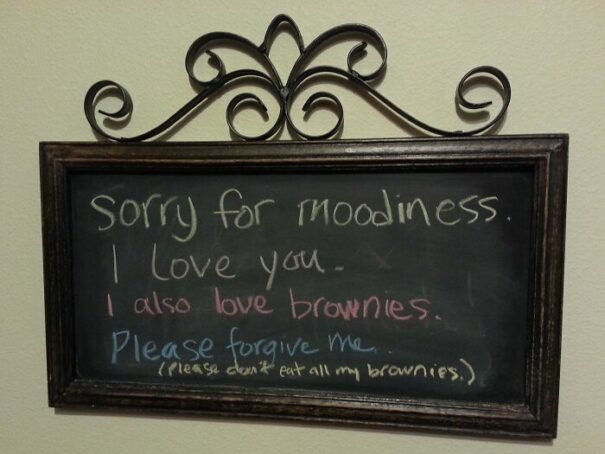 Sorry for moodiness.
I love you.
I also love brownies.
Please forgive me.
(Please don't eat all my brownies.)